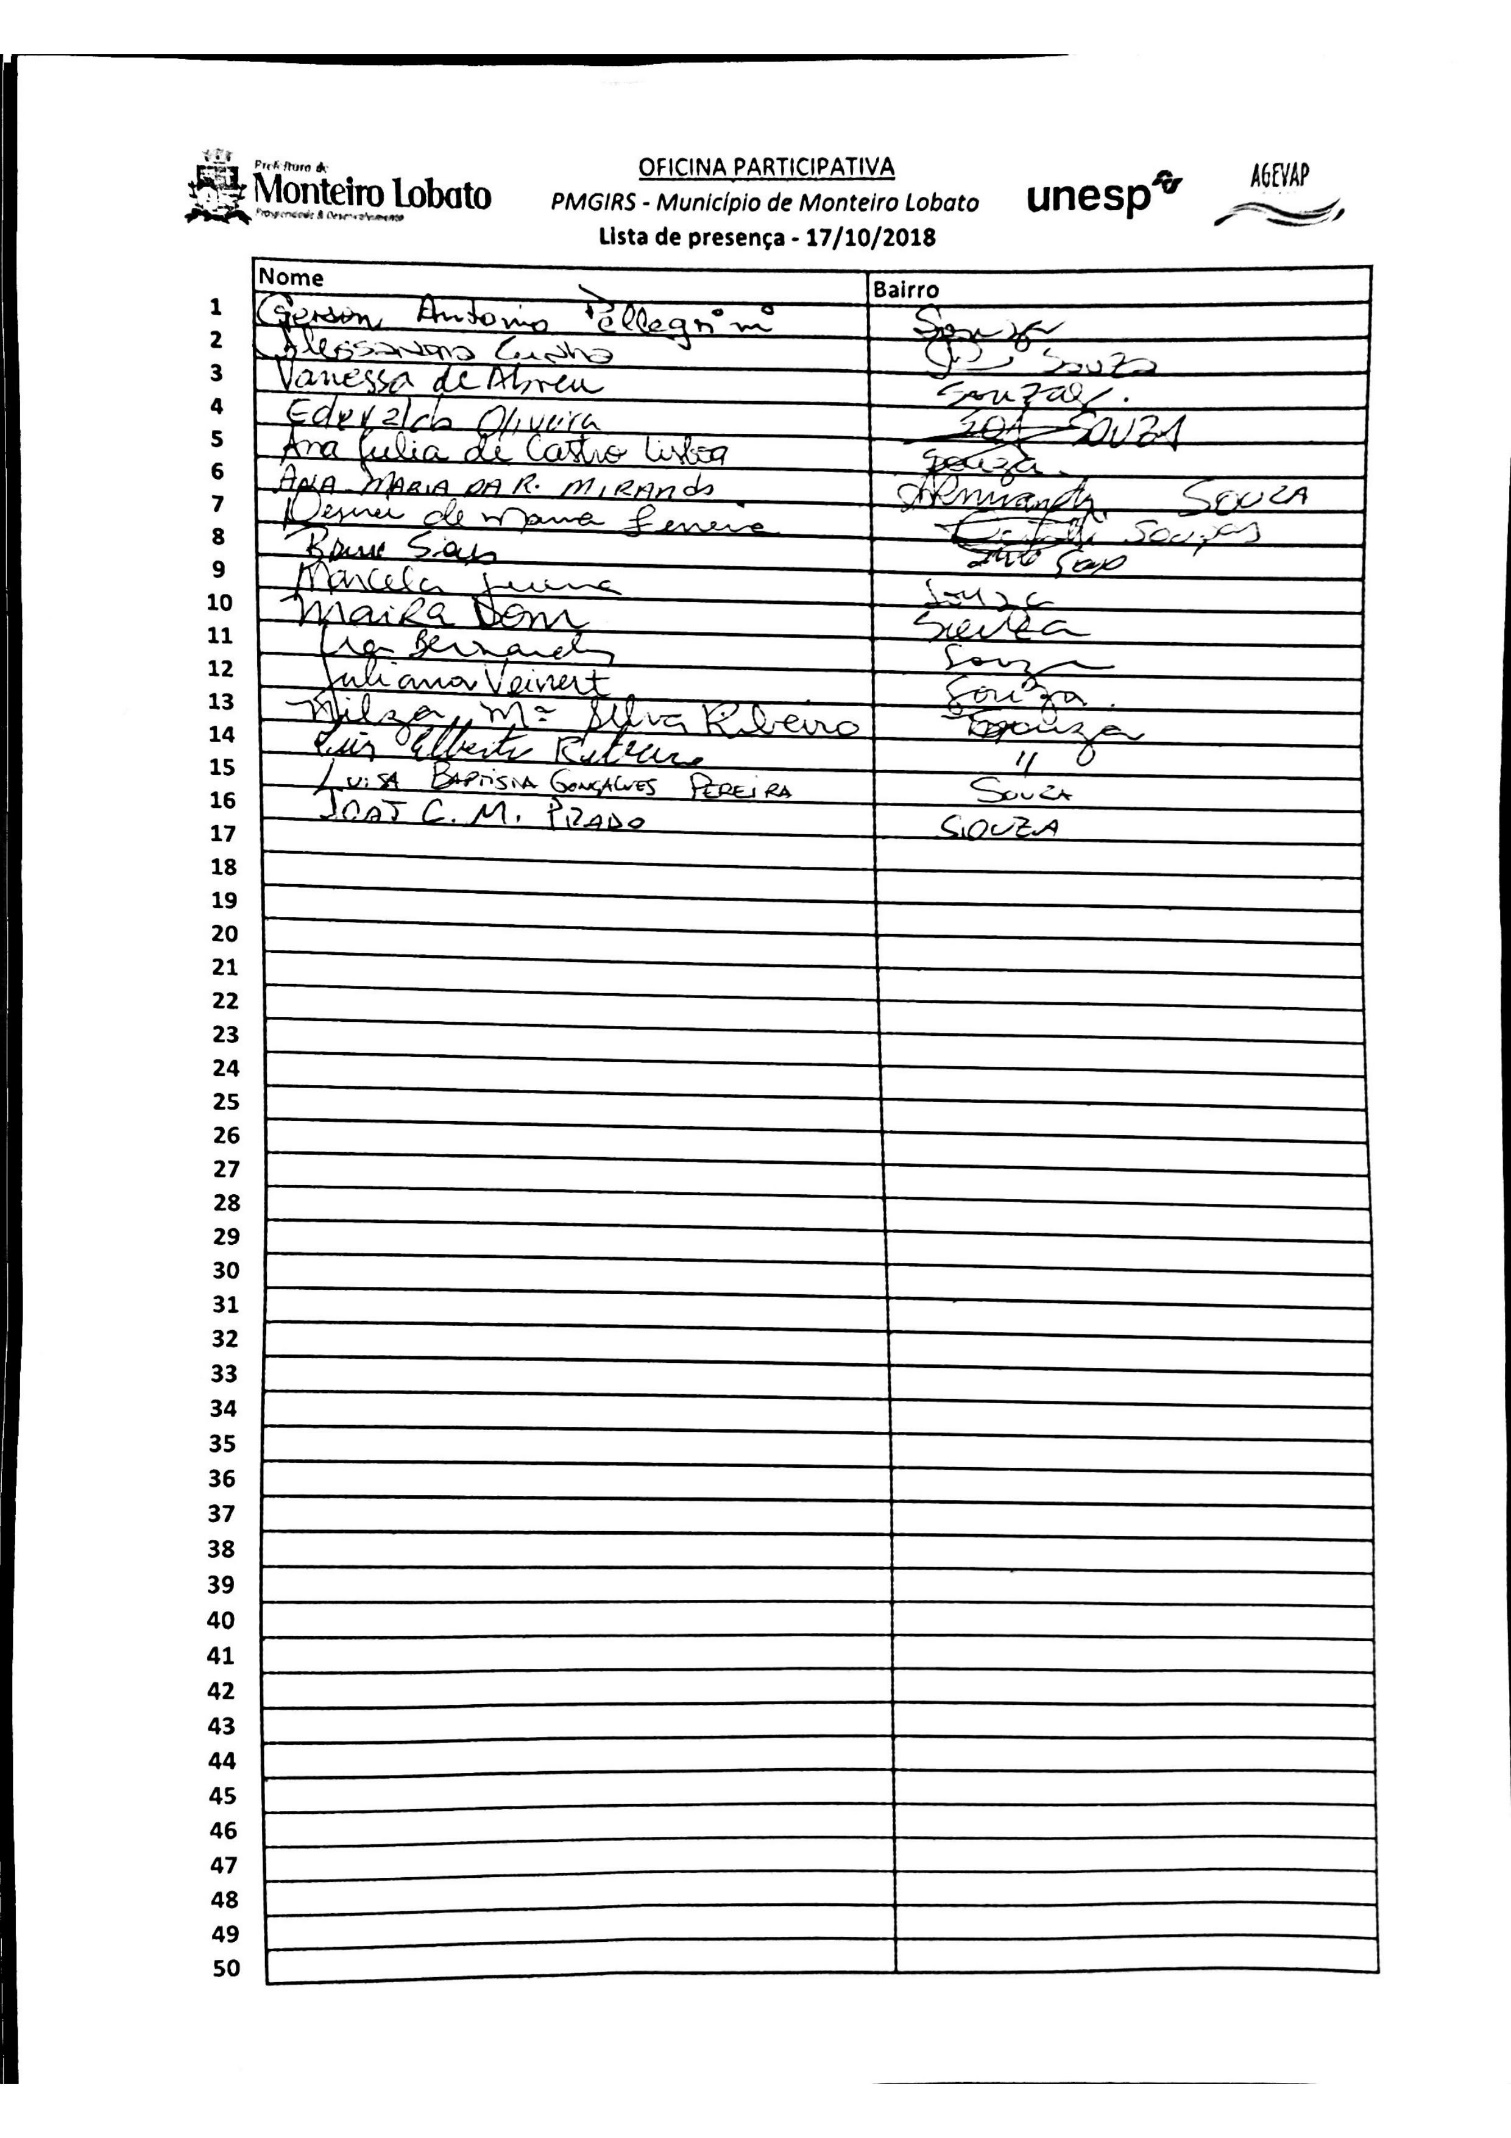 Prefeitura de
Monteiro Lobato
Prosperidade & Desenvolvimento
OFICINA PARTICIPATIVA
PMGIRS - Município de Monteiro Lobato
Lista de presença - 17/10/2018
unesp
AGEVAP
Nome Bairro
1 Gerson Antonio Pellegrini Souza
2 Alessandra Cunha Souza
3 Vanessa de Abreu Souza.
4 Edevaldo Oliveira SOUZA
5 Ana Julia de Castro Lisboa Souza.
6 ANA MARIA DA R. MIRANDA SOUZA
7 de Souzas
8
9 Marcela Souza
10 Maira Dom
11 Bernardes Souza
12 Juliana Veinert Souza.
13 Nilza Mª Silva Ribeiro Souza
14 Luis Alberto "
15 LUISA BAPTISTA GONÇALVES PEREIRA SOUZA
16 C. M. PRADO SOUZA
17
18
19
20
21
22
23
24
25
26
27
28
29
30
31
32
33
34
35
36
37
38
39
40
41
42
43
44
45
46
47
48
49
50